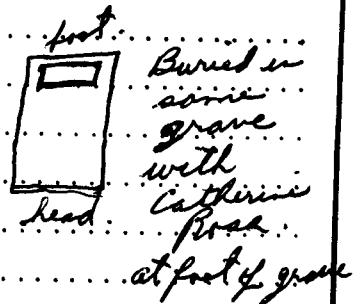 foot
Buried in
same
grave
with
Catherine
Rose
head
at foot of grave